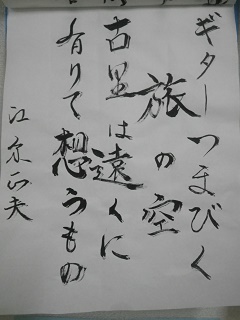 ギターつまびく
旅の空
古里は遠くに
有りて想うもの
江尓正夫